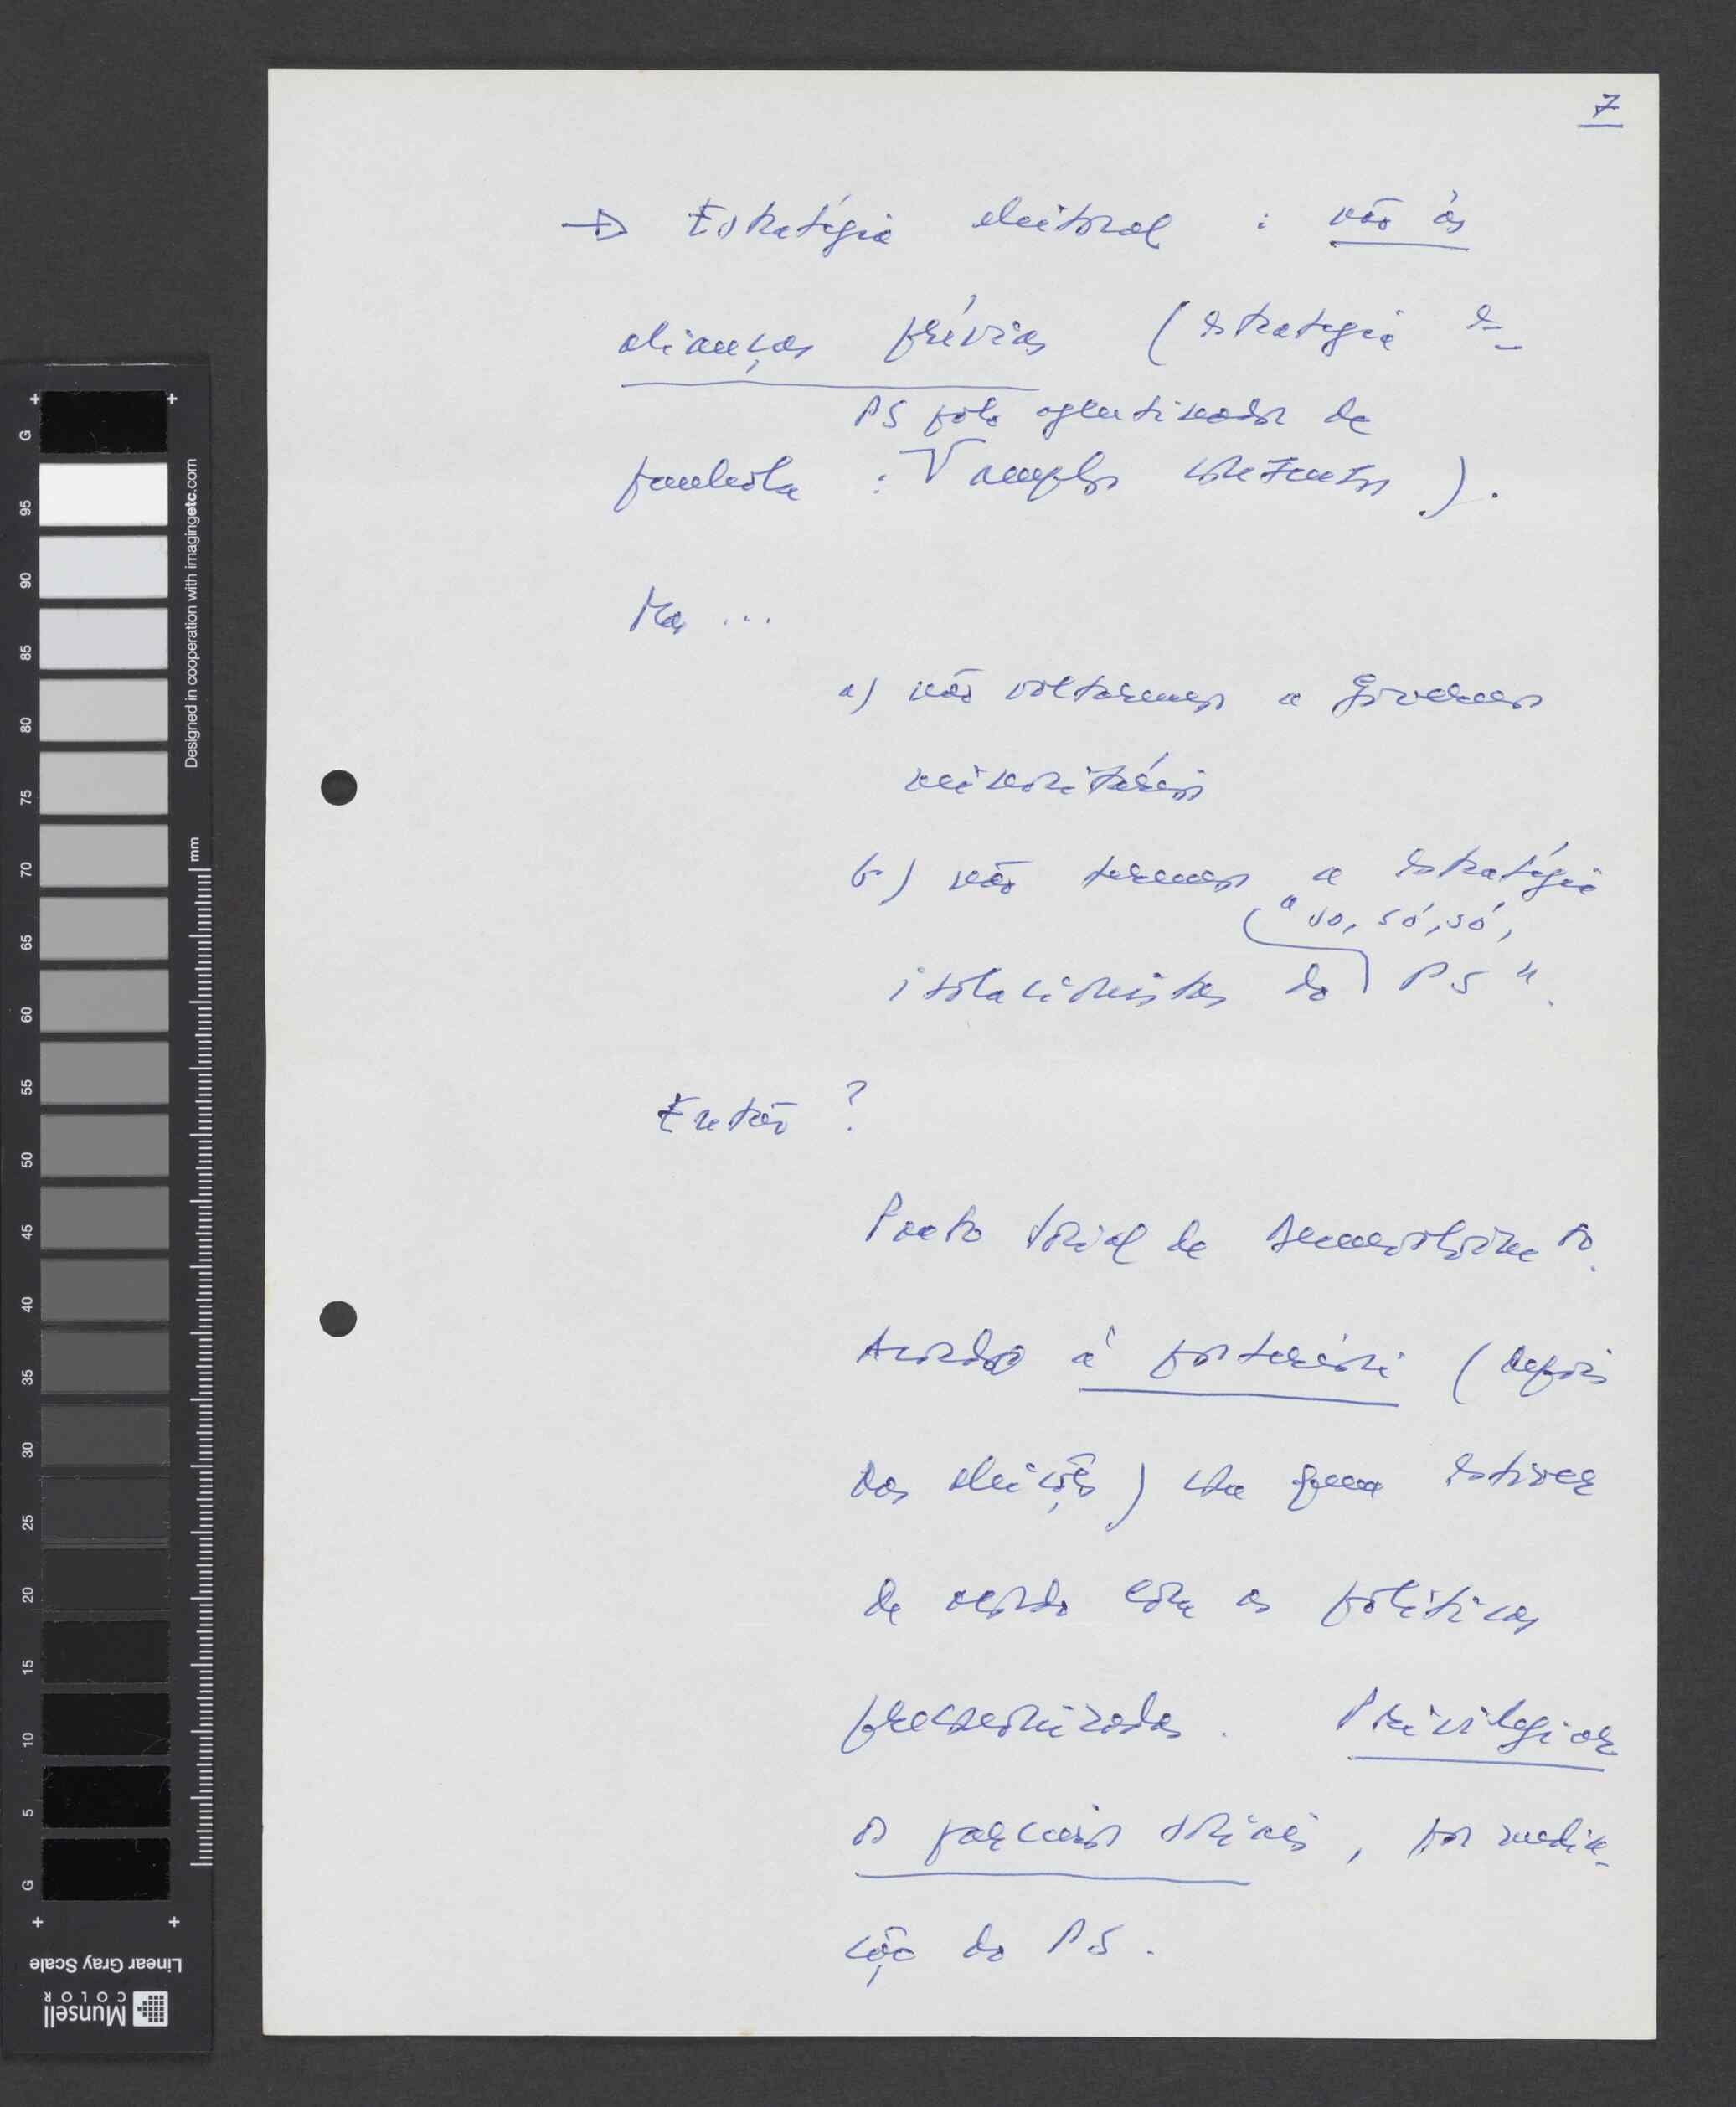 7
→ Estratégia eleitoral : não às
alianças prévias (estratégia es-
PS pólo aglutinador de
panhola : V amplos consensos).
Mas ...
a) não voltaremos a Governos
minoritários
b) não teremos a estratégia
"só, só, só,
isolacionistas do PS".
Então ?
Pacto Social de Desenvolvimento.
Acordo à posteriori (depois
das eleições) com quem estiver
de acordo com as políticas
preconizadas. Privilegiar
os parceiros sociais, por media-
ção do PS.
G 5 10 15 20 25 30 35 40 45 50 55 60 65 70 75 80 85 90 95 G
mm
Designed in cooperation with imagingetc.com
Linear Gray Scale
Munsell
COLOR